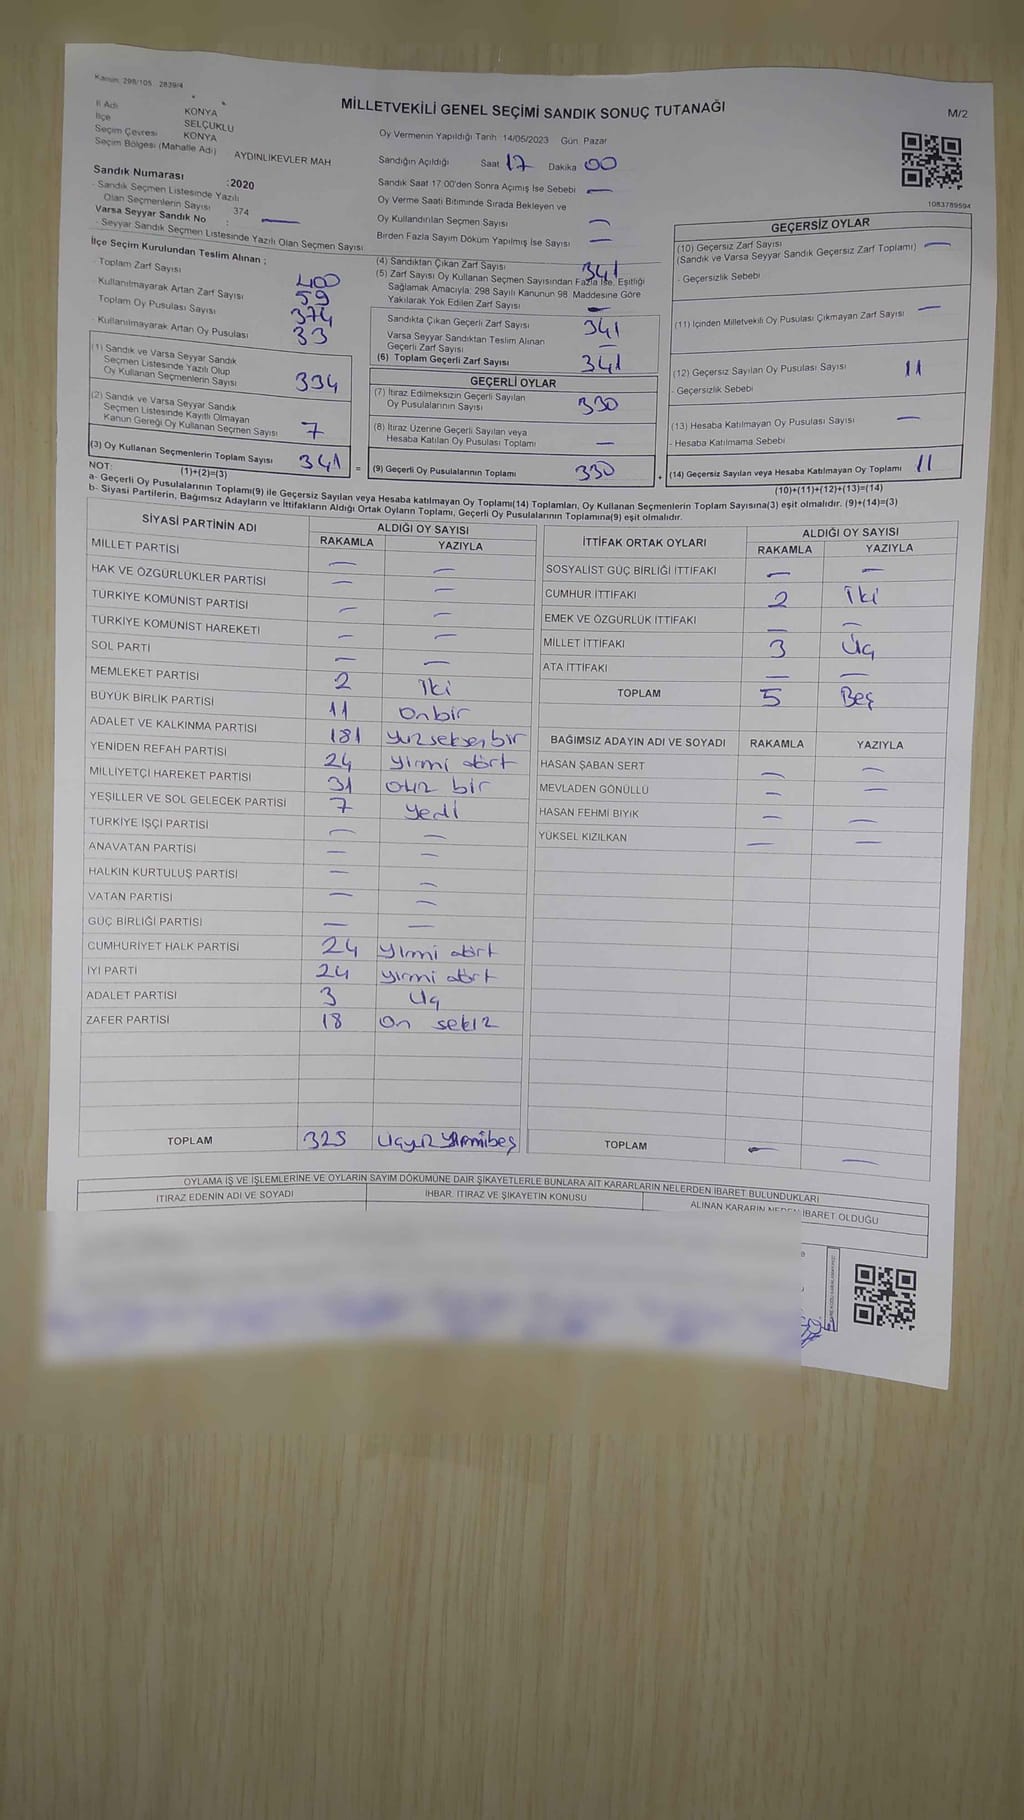 Kanun: 298/105 2839/4
MİLLETVEKİLİ GENEL SEÇİMİ SANDIK SONUÇ TUTANAĞI
M/2
İl Adı KONYA
İlçe SELÇUKLU
Seçim Çevresi KONYA
Seçim Bölgesi (Mahalle Adı) AYDINLIKEVLER MAH
Sandık Numarası :2020
- Sandık Seçmen Listesinde Yazılı
Olan Seçmenlerin Sayısı 374
Varsa Seyyar Sandık No : —
- Seyyar Sandık Seçmen Listesinde Yazılı Olan Seçmen Sayısı
İlçe Seçim Kurulundan Teslim Alınan ;
- Toplam Zarf Sayısı 400
- Kullanılmayarak Artan Zarf Sayısı 59
Toplam Oy Pusulası Sayısı 374
- Kullanılmayarak Artan Oy Pusulası 33
(1) Sandık ve Varsa Seyyar Sandık
Seçmen Listesinde Yazılı Olup
Oy Kullanan Seçmenlerin Sayısı 334
(2) Sandık ve Varsa Seyyar Sandık
Seçmen Listesinde Kayıtlı Olmayan
Kanun Gereği Oy Kullanan Seçmen Sayısı 7
(3) Oy Kullanan Seçmenlerin Toplam Sayısı 341 =
(1)+(2)=(3)
Oy Vermenin Yapıldığı Tarih 14/05/2023 Gün Pazar
Sandığın Açıldığı Saat 17 Dakika 00
Sandık Saat 17 00'den Sonra Açımış İse Sebebi —
Oy Verme Saati Bitiminde Sırada Bekleyen ve
Oy Kullandırılan Seçmen Sayısı —
Birden Fazla Sayım Döküm Yapılmış İse Sayısı —
(4) Sandıktan Çıkan Zarf Sayısı 341
(5) Zarf Sayısı Oy Kullanan Seçmen Sayısından Fazla İse, Eşitliği
Sağlamak Amacıyla; 298 Sayılı Kanunun 98. Maddesine Göre
Yakılarak Yok Edilen Zarf Sayısı —
Sandıkta Çıkan Geçerli Zarf Sayısı 341
Varsa Seyyar Sandıktan Teslim Alınan
Geçerli Zarf Sayısı —
(6) Toplam Geçerli Zarf Sayısı 341
GEÇERLİ OYLAR
(7) İtiraz Edilmeksizin Geçerli Sayılan
Oy Pusulalarının Sayısı 330
(8) İtiraz Üzerine Geçerli Sayılan veya
Hesaba Katılan Oy Pusulası Toplamı —
(9) Geçerli Oy Pusulalarının Toplamı 330 +
1083789594
GEÇERSİZ OYLAR
(10) Geçersiz Zarf Sayısı —
(Sandık ve Varsa Seyyar Sandık Geçersiz Zarf Toplamı)
- Geçersizlik Sebebi
(11) İçinden Milletvekili Oy Pusulası Çıkmayan Zarf Sayısı —
(12) Geçersiz Sayılan Oy Pusulası Sayısı 11
- Geçersizlik Sebebi
(13) Hesaba Katılmayan Oy Pusulası Sayısı —
- Hesaba Katılmama Sebebi
(14) Geçersiz Sayılan veya Hesaba Katılmayan Oy Toplamı 11
(10)+(11)+(12)+(13)=(14)
NOT:
a- Geçerli Oy Pusulalarının Toplamı(9) ile Geçersiz Sayılan veya Hesaba katılmayan Oy Toplamı(14) Toplamları, Oy Kullanan Seçmenlerin Toplam Sayısına(3) eşit olmalıdır. (9)+(14)=(3)
b- Siyasi Partilerin, Bağımsız Adayların ve İttifakların Aldığı Ortak Oyların Toplamı, Geçerli Oy Pusulalarının Toplamına(9) eşit olmalıdır.
SİYASİ PARTİNİN ADI ALDIĞI OY SAYISI
RAKAMLA YAZIYLA
MİLLET PARTİSİ — —
HAK VE ÖZGÜRLÜKLER PARTİSİ — —
TÜRKİYE KOMÜNİST PARTİSİ — —
TÜRKİYE KOMÜNİST HAREKETİ — —
SOL PARTİ — —
MEMLEKET PARTİSİ 2 iki
BÜYÜK BİRLİK PARTİSİ 11 onbir
ADALET VE KALKINMA PARTİSİ 181 yüzseksenbir
YENİDEN REFAH PARTİSİ 24 yirmi dört
MİLLİYETÇİ HAREKET PARTİSİ 31 otuz bir
YEŞİLLER VE SOL GELECEK PARTİSİ 7 yedi
TÜRKİYE İŞÇİ PARTİSİ — —
ANAVATAN PARTİSİ — —
HALKIN KURTULUŞ PARTİSİ — —
VATAN PARTİSİ — —
GÜÇ BİRLİĞİ PARTİSİ — —
CUMHURİYET HALK PARTİSİ 24 yirmi dört
İYİ PARTİ 24 yirmi dört
ADALET PARTİSİ 3 üç
ZAFER PARTİSİ 18 on sekiz
TOPLAM 325 üçyüz yirmibeş
İTTİFAK ORTAK OYLARI ALDIĞI OY SAYISI
RAKAMLA YAZIYLA
SOSYALİST GÜÇ BİRLİĞİ İTTİFAKI — —
CUMHUR İTTİFAKI 2 iki
EMEK VE ÖZGÜRLÜK İTTİFAKI — —
MİLLET İTTİFAKI 3 üç
ATA İTTİFAKI — —
TOPLAM 5 Beş
BAĞIMSIZ ADAYIN ADI VE SOYADI RAKAMLA YAZIYLA
HASAN ŞABAN SERT — —
MEVLADEN GÖNÜLLÜ — —
HASAN FEHMİ BIYIK — —
YÜKSEL KIZILKAN — —
TOPLAM — —
OYLAMA İŞ VE İŞLEMLERİNE VE OYLARIN SAYIM DÖKÜMÜNE DAİR ŞİKAYETLERLE BUNLARA AİT KARARLARIN NELERDEN İBARET BULUNDUKLARI
İTİRAZ EDENİN ADI VE SOYADI İHBAR, İTİRAZ VE ŞİKAYETİN KONUSU ALINAN KARARIN NEDEN İBARET OLDUĞU